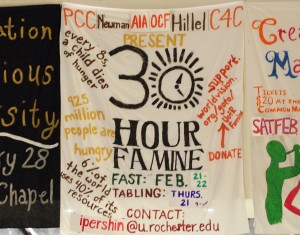 ation
ious
sity
y 28
Chapel
PCC Newman AIA OCF Hillel C4C
PRESENT
every 8s,
a child dies
of hunger
925
million
people are
hungry
6% of
the world
uses 40% of its
resources
30
HOUR
FAMINE
support
worldvision.
org/
DONATE
FAST: FEB. 21-
22
TABLING: THURS.
21
CONTACT:
ipershin@u.rochester.edu
Crea
Ma
TICKETS
$20 AT THE
COMMON MA
SAT FEB